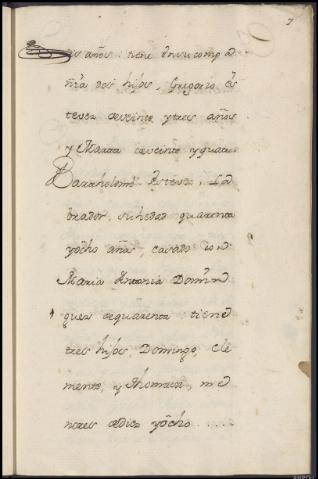 7
is años: tiene en su compa
ñia dos hijos, Gregorio Es
teves de veinte y tres años
y Maria de veinte y quatro
Bartholome Esteves, La
brador, su hedad quarenta
y ocho años, casado con
Maria Antonia Domin
guez de quarenta: tiene
tres hijos, Domingo, Cle
mente, y Thomasa, me
nores de diez y ocho . . . .